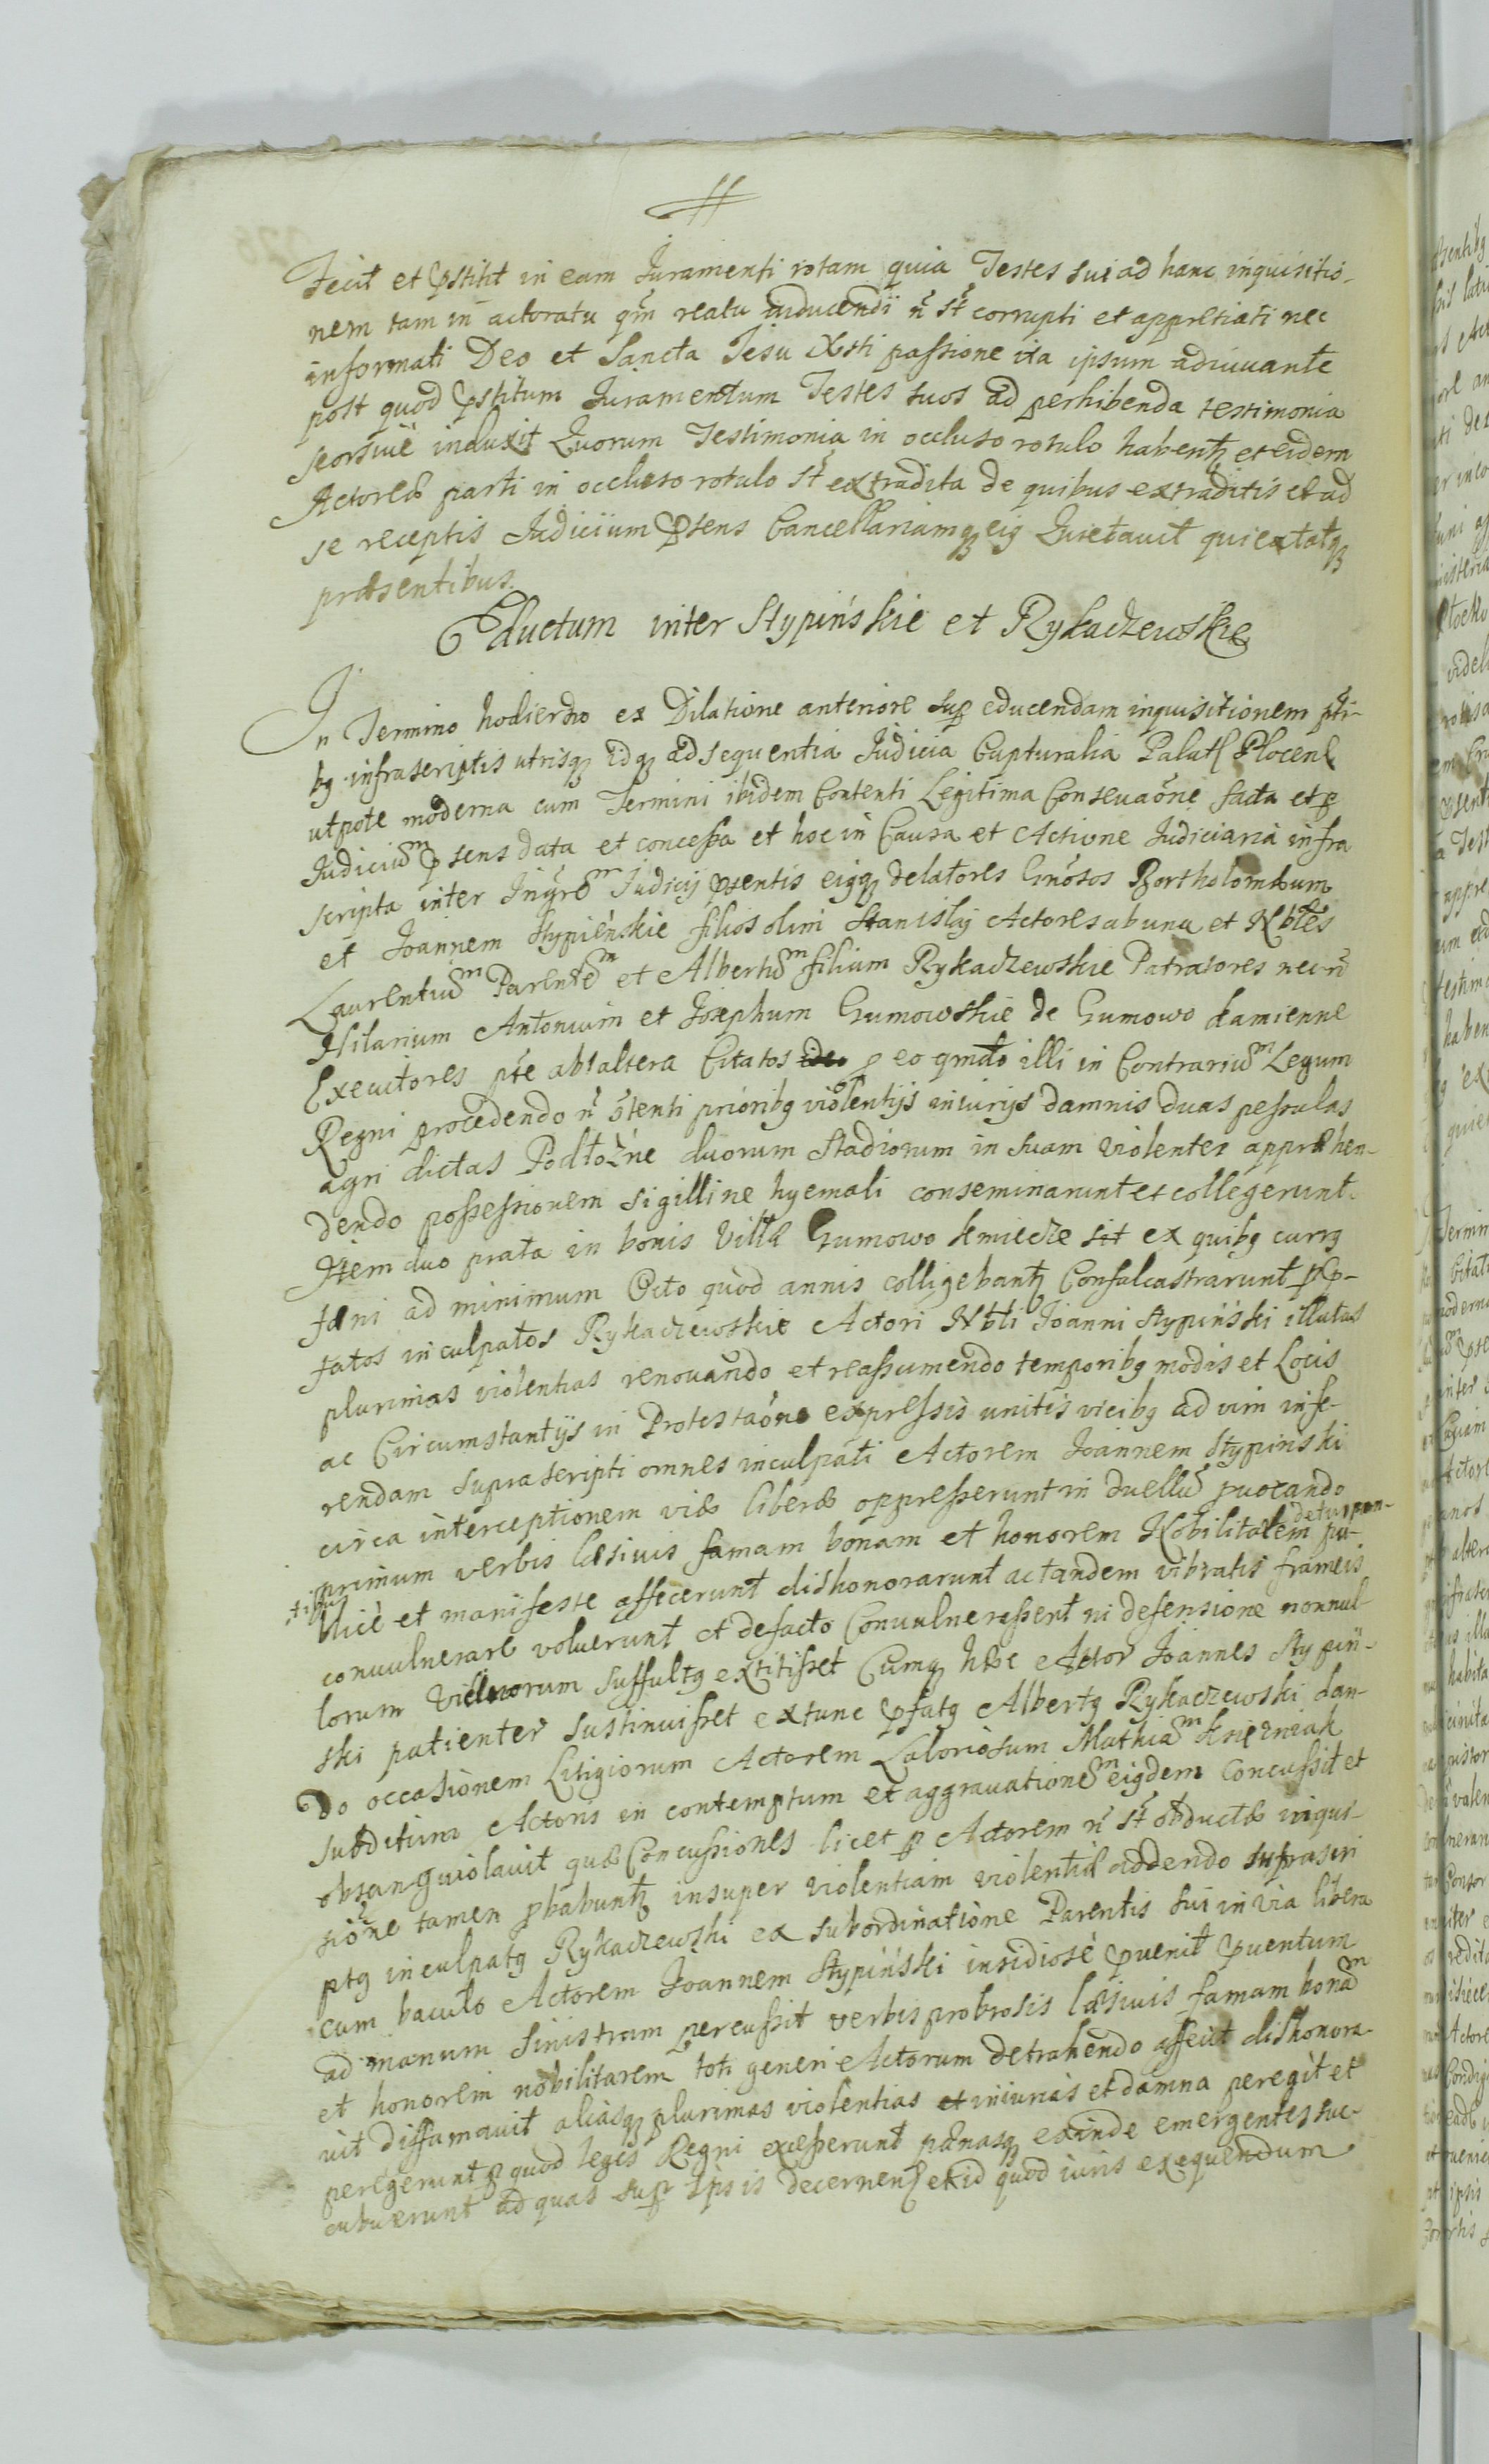 Fecit et pstitit in eam Juramenti rotam quia Testes sui ad hanc inquisitio-
nem tam in actoratu qm reatu inducendi n st corrupti et appretiati nec
informati Deo et Sancta Jesu Xsti passione ita ipsum adiuuante
post quod pstitum Juramentum Testes suos ad perhibenda testimonia
seorsiue induxit Quorum Testimonia in occluso rotulo habentz et eidem
Actoreæ parti in occluso rotulo st extradita de quibus extraditis et ad
se receptis Judicium psens Cancellariamq eig Quietauit quietatq
præsentibus.
Eductum inter Stypińskie et Rykaczewskie
In Termino hodierno ex Dilatione anteriore sup educendam inquisitionem pti-
bg infrascriptis utrisq idq ad sequentia Judicia Capturalia Palatl Plocenl
utpote moderna cum Termini ibidem Contenti Legitima Conseruaone facta et p
Judicium psens data et concessa et hoc in Causa et Actione Judiciaria infra
scripta inter Ingrem Judicij psentis eigq delatores Gnosos Bartholomæum
et Joannem Stypińskie filios olim Stanislaj Actores ab una et Nbles
Laurentium Parentem et Albertum filium Rykaczewskie Patratores necn
Hilarium Antonium et Josephum Gumowskie de Gumowo kamienne
Executores pte ab altera Citatos p eo qmdo illi in Contrarium Legum
Regni procedendo n otenti prioribg violentijs iniurijs damnis duas pessulas
agri dictas Podłożne duorum Stadiorum in suam violenter appræhen-
dendo possessionem sigilline hyemali conseminarunt et collegerunt.
Item duo prata in bonis Villæ Gumowo kmiecze sit ex quibg currg
fæni ad minimum Octo quod annis colligebantz Confalcastrarunt p p-
fatos inculpatos Rykaczewskie Actori Nbli Joanni Stypiński illatas
plurimas violentias renouando et reassumendo temporibg modis et Locis
ac Circumstantijs in Protestaone expressis unitis vicibg ad vim infe-
rendam suprascripti omnes inculpati Actorem Joannem Stypinski
circa interceptionem viæ liberæ oppresserunt in duellum puocando
primum verbis læsiuis famam bonam et honorem Nobilitarem deturpan-
tibus pu-
blicè et manifeste affecerunt dishonorarunt ac tandem vibratis frameis
conuulnerare voluerunt et defacto Conuulnerassent ni defensione nonnul-
lorum Vicinorum suffultg extitisset Cumq hæc Actor Joannes Stypiń-
ski patienter sustinuisset extunc pfatg Albertg Rykaczewski dan-
do occasionem Litigiorum Actorem Laboriosum Mathiam Księzniak
subditum Actoris in contemptum et aggrauationem eigdem Concussit et
obsanguiolauit quæ Concussiones licet p Actorem n st obductæ inqui-
sione tamen pbabuntz insuper violentiam violentiæ addendo suprascri
ptg inculpatg Rykaczewski ex subordinatione Parentis sui in via libera
cum baculo Actorem Joannem Stypiński insidiosè puenit puentum
ad manum sinistram percussit verbis probrosis læsiuis famam bonam
et honorem nobilitarem toti generi Actorum detrahendo affecit dishonora-
uit diffamauit aliasq plurimas violentias et iniurias et damna peregit et
peregerunt p quod legis Regni excesserunt pænasq exinde emergentes suc-
cubuerunt ad quas sup ipsis decernenl et id quod iuris exequendum